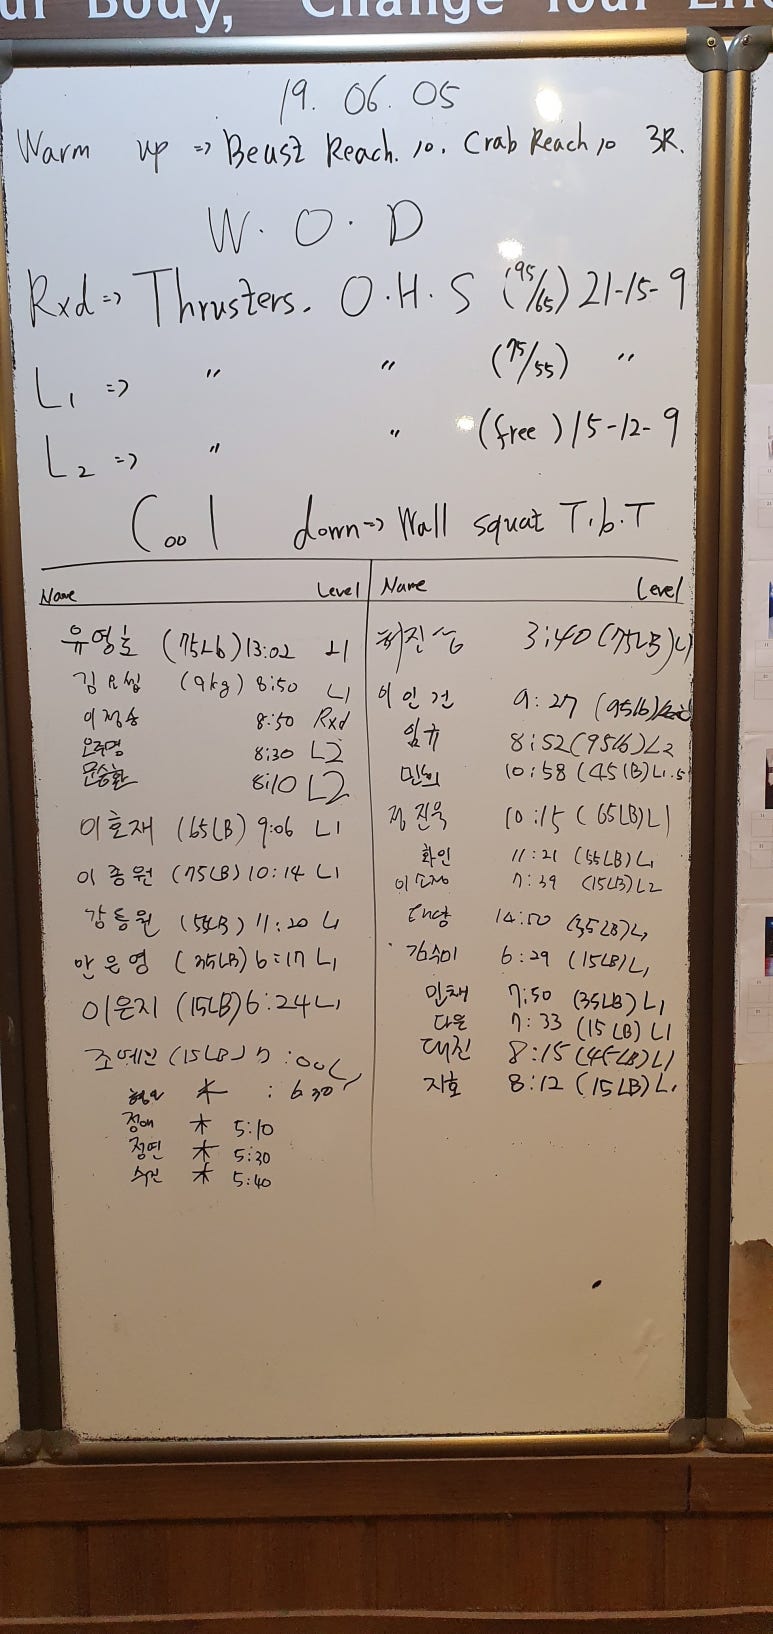 Body, Change Your
19. 06. 05
Warm up => Beast Reach. 10. Crab Reach 10 3R.
W. O. D
Rxd => Thrusters. O.H.S (95/65) 21-15-9
L1 => " " (75/55) "
L2 => " " (free) 15-12-9
Cool down => Wall squat T.b.T
Name Level
유영호 (75Lb) 13:02 L1
김요셉 (9kg) 8:50 L1
이정승 8:50 Rxd
오주영 8:30 L2
문승환 8:10 L2
이호재 (65LB) 9:06 L1
이종원 (75LB) 10:14 L1
강동원 (55LB) 11:20 L1
안은영 (35LB) 6:17 L1
이은지 (15LB) 6:24 L1
조예인 (15LB) 7:00 L1
* : 6:30
정애 * 5:10
정연 * 5:30
수진 * 5:40
Name Level
허진성 3:40 (75LB) L1
이인건 9:27 (95lb)
임규 8:52 (95lb) L2
민희 10:58 (45LB) L1.5
정진욱 10:15 (65LB) L1
화인 11:21 (55LB) L1
이소정 7:39 (15LB) L2
태양 14:50 (35LB) L1
김수미 6:29 (15LB) L1
민채 7:50 (35LB) L1
다운 7:33 (15LB) L1
대진 8:15 (45LB) L1
지호 8:12 (15LB) L1